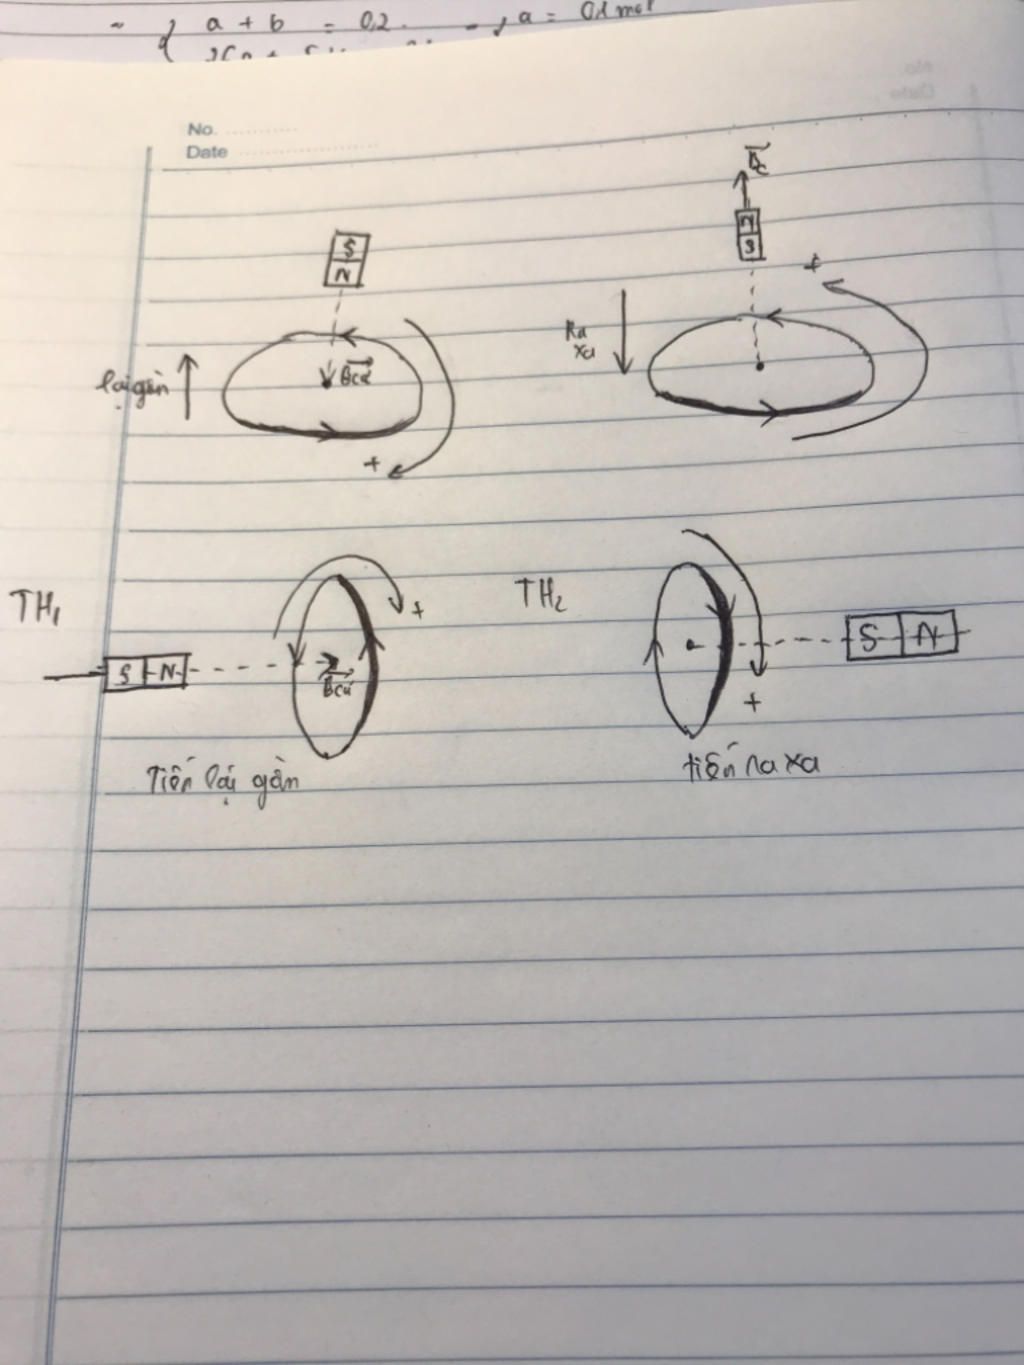 a + b = 0,2. a = 0,1 mol
No.
Date
S
N
lại gần
Bcư
+
N
S
Ra
xa
+
TH1
S N
Bcư
+
Tiến lại gần
TH2
S N
+
tiến ra xa